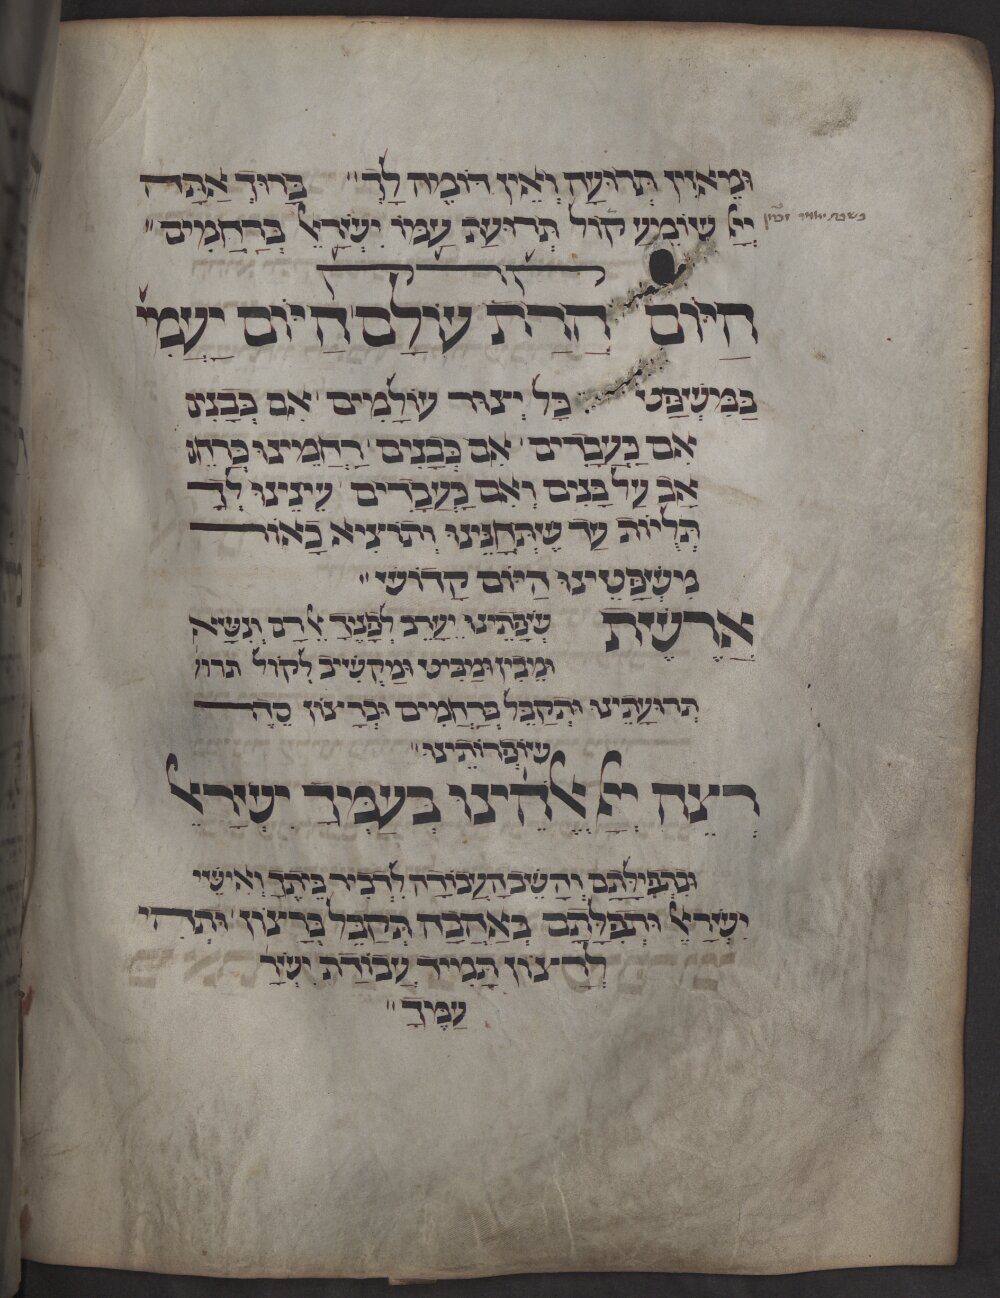 וּמַאֲזִין תְּרוּעָה וְאֵין דּוֹמֶה לָךְ׃ בָּרוּךְ אַתָּה
יְיָ שׁוֹמֵעַ קוֹל תְּרוּעַת עַמּוֹ יִשְׂרָאֵל בְּרַחֲמִים׃
קׄ קׄ קׄ
הַיּוֹם הֲרַת עוֹלָם הַיּוֹם יַעֲמִי
בַּמִּשְׁפָּט כָּל יְצוּר עוֹלָמִים אִם כְּבָנִים
אִם כַּעֲבָדִים אִם כְּבָנִים רַחֲמֵינוּ כְּרַחֵם
אָב עַל בָּנִים וְאִם כַּעֲבָדִים עֵינֵינוּ לְךָ
תְּלוּיוֹת עַד שֶׁתְּחָנֵּינוּ וְתוֹצִיא כָאוֹר
מִשְׁפָּטֵינוּ הַיּוֹם קָדוֹשׁ׃
אֲרֶשֶׁת שְׂפָתֵינוּ יֶעֱרַב לְפָנֶיךָ אֵל רָם וְנִשָּׂא
וּמֵבִין וּמַבִּיט וּמַקְשִׁיב לְקוֹל תרוע
תְּרוּעָתֵינוּ וּתְקַבֵּל בְּרַחֲמִים וּבְרָצוֹן סֵדֶר
שׁוֹפְרוֹתֵינוּ׃
רְצֵה יְיָ אֱלֹהֵינוּ בְּעַמְּךָ יִשְׂרָאֵל
וּבִתְפִילָּתָם וְהָשֵׁב הָעֲבוֹדָה לִדְבִיר בֵּיתֶךָ וְאִישֵּׁי
יִשְׂרָאֵל וּתְפִלָּתָם בְּאַהֲבָה תְּקַבֵּל בְּרָצוֹן וּתְהִי
לְרָצוֹן תָּמִיד עֲבוֹדַת יִשְׂרָ
עַמֶּךָ׃